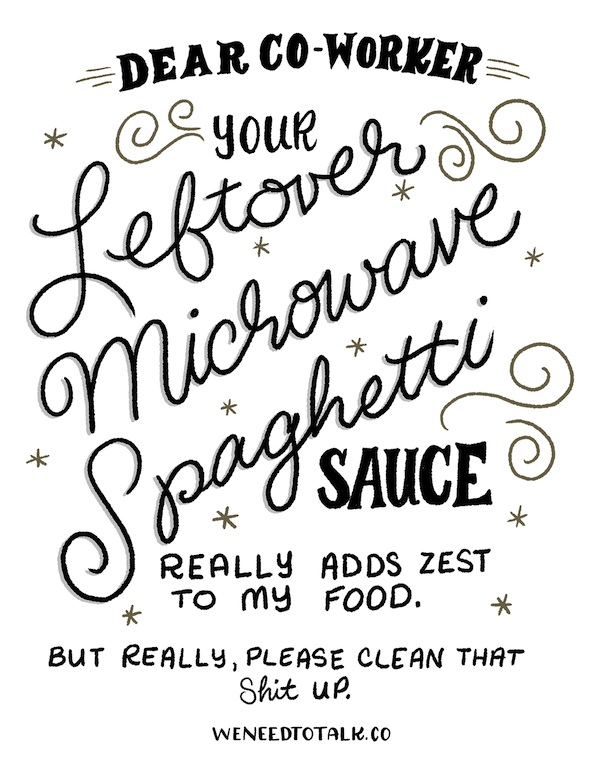 DEAR CO-WORKER
YOUR
Leftover
Microwave
Spaghetti
SAUCE
REALLY ADDS ZEST
TO MY FOOD.
BUT REALLY, PLEASE CLEAN THAT
Shit UP.
WENEEDTOTALK.CO